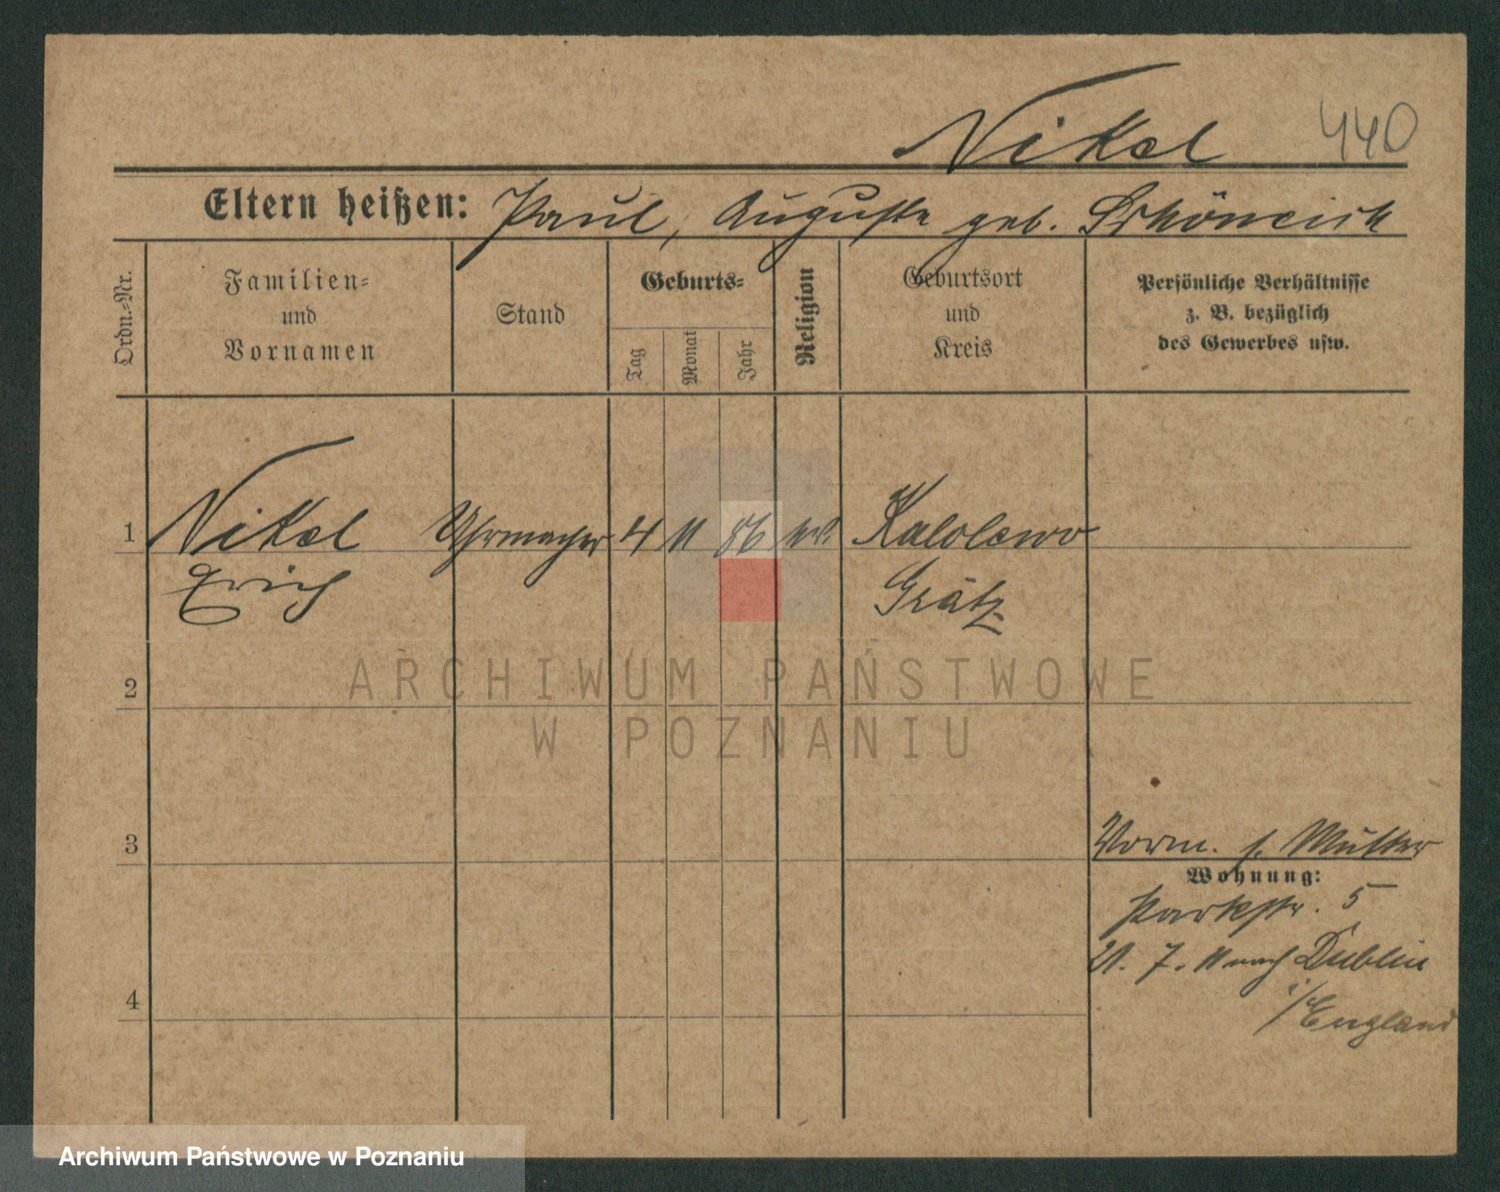 Nikel 440
Eltern heißen: Paul, Auguste geb.
Ordn.-Nr.
Familien-
und
Vornamen
Stand
Geburts-
Tag
Monat
Jahr
Religion
Geburtsort
und
Kreis
Persönliche Verhältnisse
z. B. bezüglich
des Gewerbes usw.
1 Nikel Uhrmacher 4 11 86 Kalolewo
Erich Grätz
2
3
Vorm. s. Mutter
Wohnung:
Parkstr. 5
21. 7. 11 nach Dublin
i/England
4
ARCHIWUM PAŃSTWOWE
W POZNANIU
Archiwum Państwowe w Poznaniu